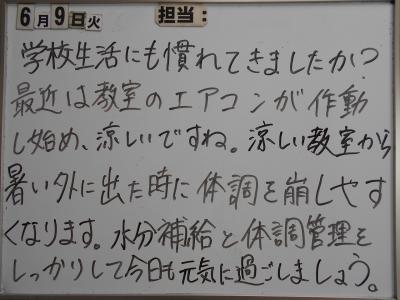 6月9日火 担当:
学校生活にも慣れてきましたか?
最近は教室のエアコンが作動
し始め、涼しいですね。涼しい教室から
暑い外に出た時に体調を崩しやす
くなります。水分補給と体調管理を
しっかりして今日も元気に過ごしましょう。